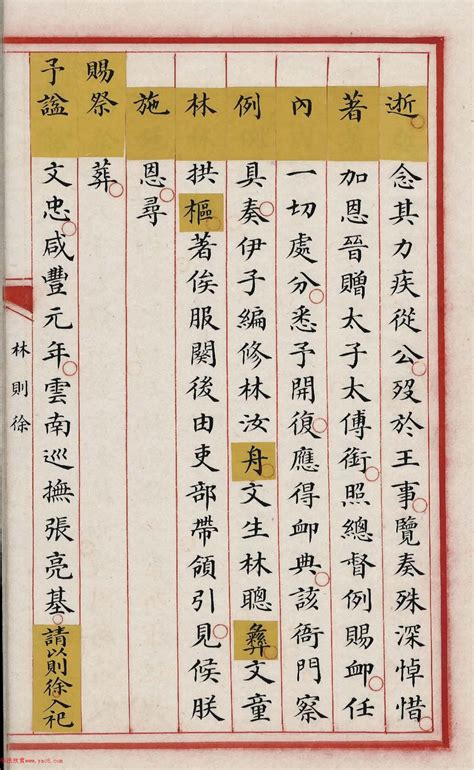 逝念其力疾從公歿於王事覽奏殊深悼惜
著加恩晉贈太子太傅銜照總督例賜卹任
內一切處分悉予開復應得卹典該衙門察
例具奏伊子編修林汝舟文生林聰彝文童
林拱樞著俟服闋後由吏部帶領引見候朕
施恩尋
賜祭葬
予諡文忠咸豐元年雲南巡撫張亮基請以則徐入祀
林則徐
www.yac8.com